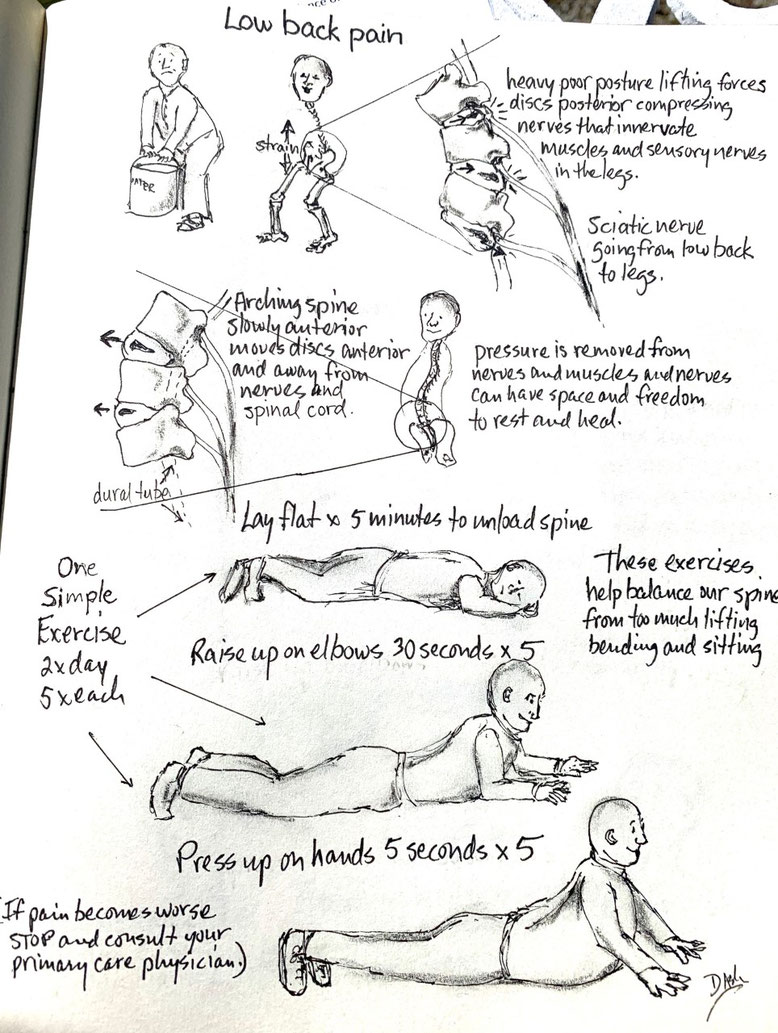 Low back pain
heavy poor posture lifting forces
discs posterior compressing
nerves that innervate
muscles and sensory nerves
in the legs.
strain
Sciatic nerve
going from low back
to legs.
Arching spine
slowly anterior
moves discs anterior
and away from
nerves and
spinal cord.
pressure is removed from
nerves and muscles and nerves
can have space and freedom
to rest and heal.
dural tube
Lay flat x 5 minutes to unload spine
One
Simple
Exercise
2x day
5x each
These exercises
help balance our spine
from too much lifting
bending and sitting
Raise up on elbows 30 seconds x 5
Press up on hands 5 seconds x 5
(If pain becomes worse
STOP and consult your
primary care physician.)